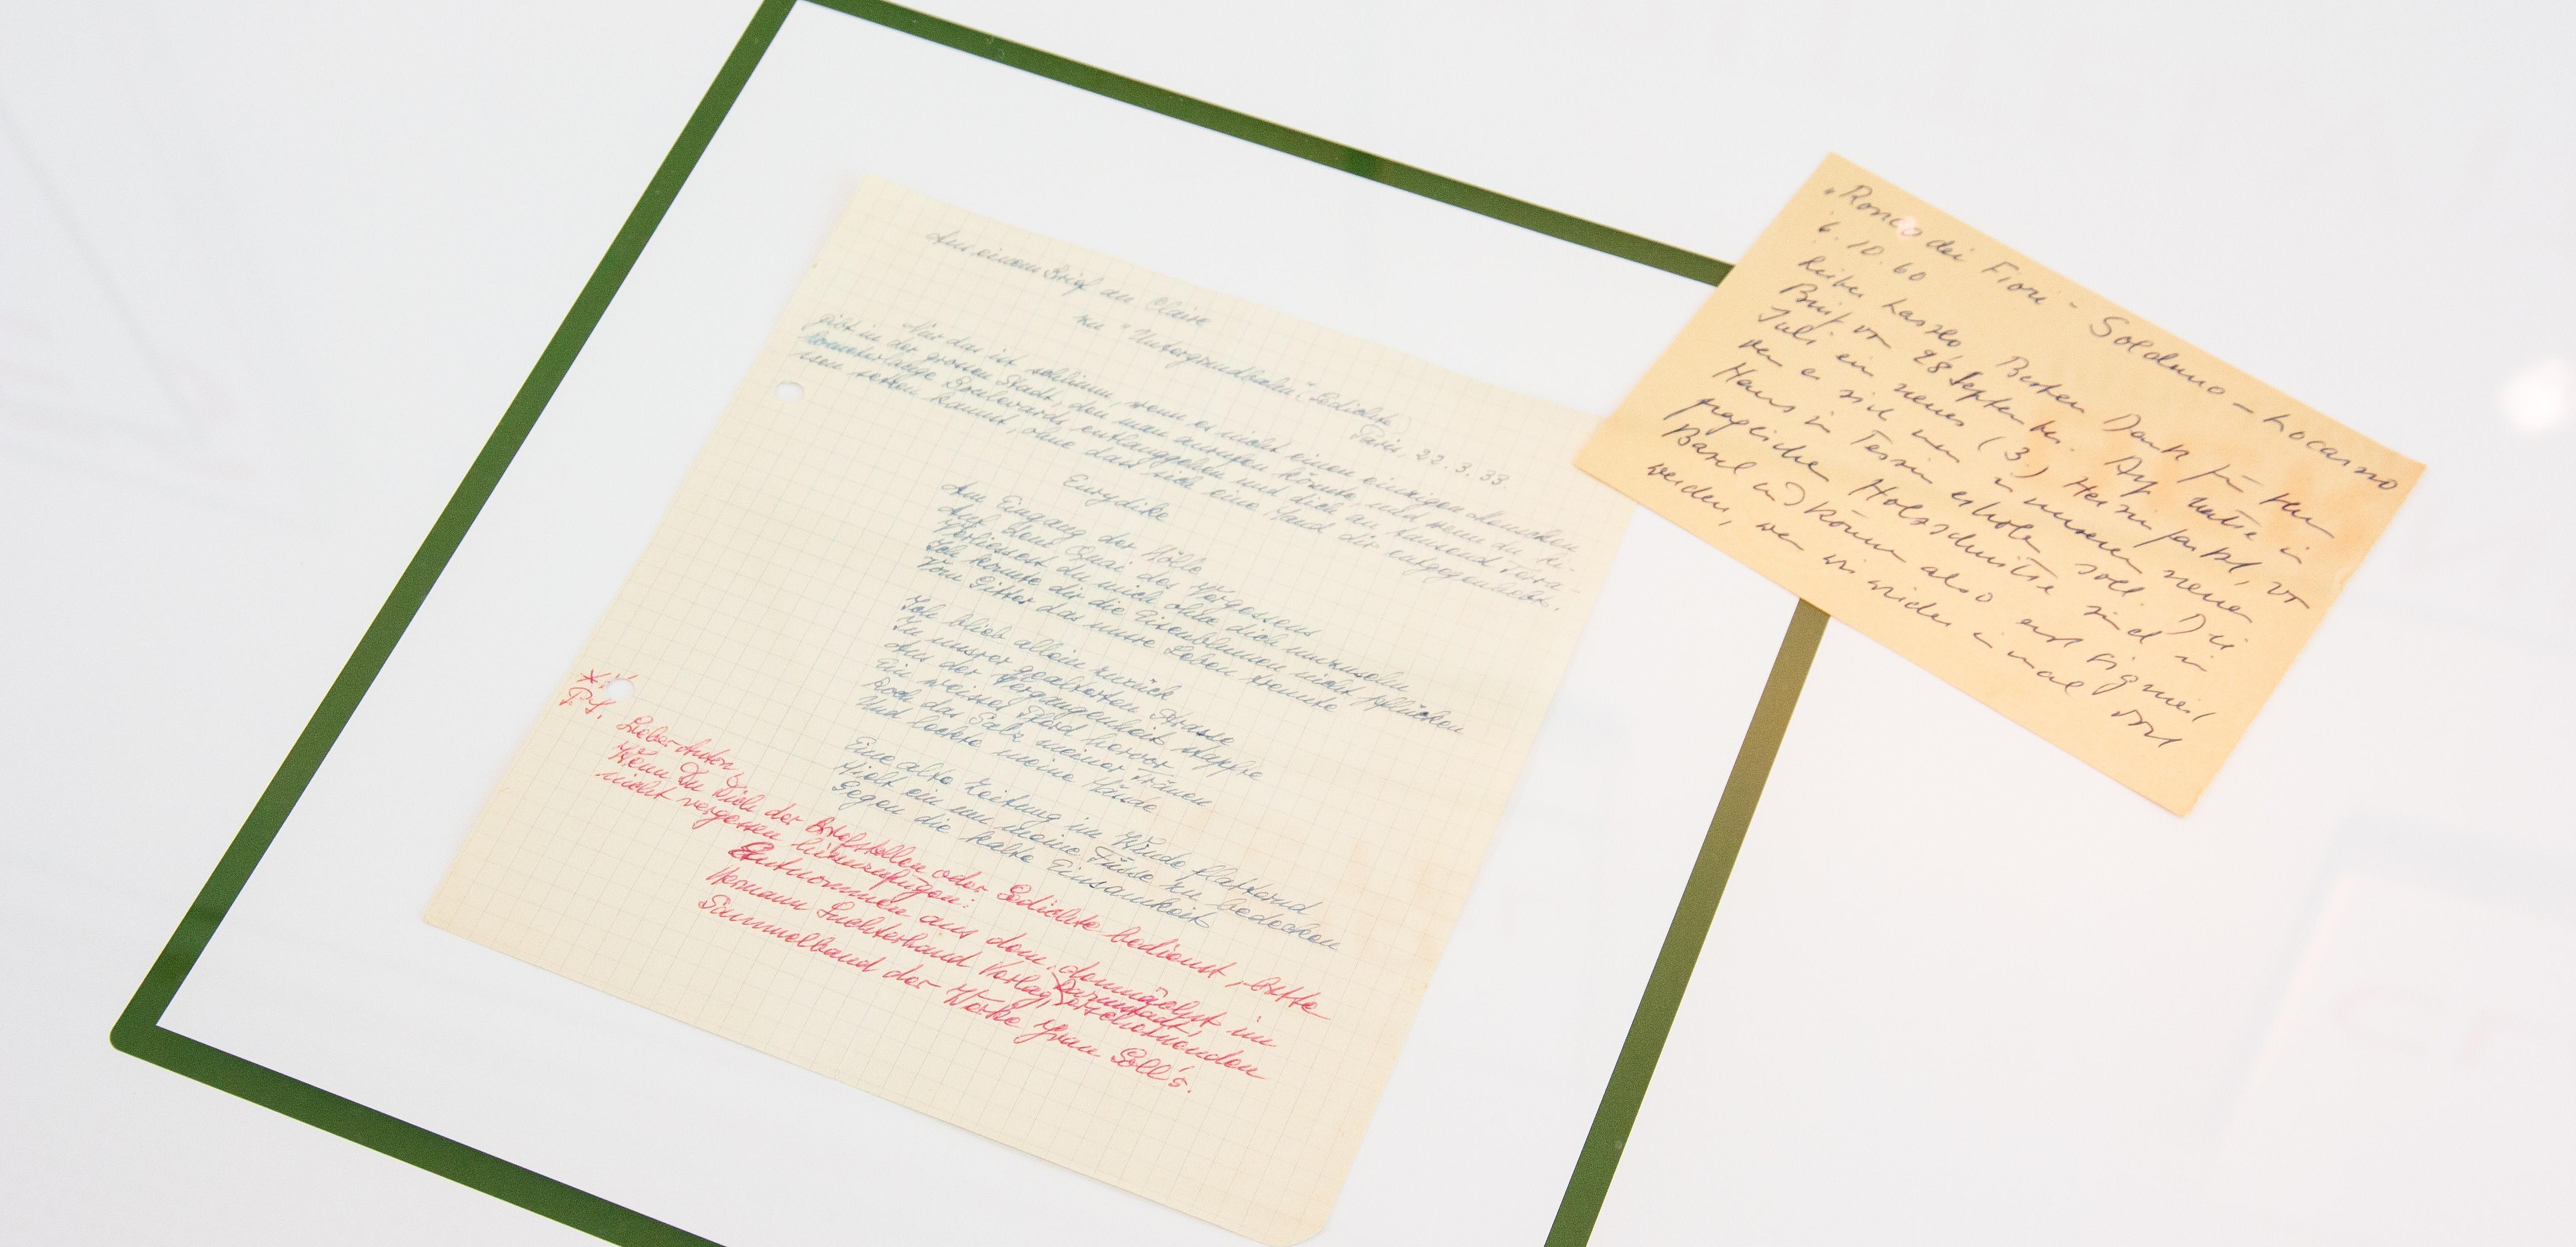 Aus einem Brief an Claire
zu "Untergrundbahn" (Gedichte)
Paris, 22. 3. 33.
Nur das ist schlimm, wenn es nicht einen einzigen Menschen
gibt in der grossen Stadt, den man anrufen könnte, und wenn du ki-
lometerlange Boulevards entlanggehen und dich an tausend Terra-
ssen setzen kannst, ohne dass sich eine Hand dir entgegenhebt.
Eurydike
Am Eingang der Hölle
Auf dem Quai des Vergessens
Verliessest du mich ohne dich umzusehn
Ich konnte dir die Eisenblumen nicht pflücken
Vom Gitter das unsre Leben trennte
Ich blieb allein zurück
In unsrer gealterten Strasse
Aus der Vergangenheit stapfte
Ein weisses Pferd hervor
Roch das Salz meiner Tränen
Und leckte meine Hände
Eine alte Zeitung im Winde flatternd
Hielt ein um meine Füsse zu bedecken
Gegen die kalte Einsamkeit
P.S.
Lieber Anton,
Wenn Du Dich der Briefstellen oder Gedichte bedienst, bitte
nicht vergessen hinzuzufügen:
Entnommen aus dem, demnächst im
Hermann Luchterhand Verlag, Darmstadt,
Sammelband der Werke Yvan Goll's.
"Ronco dei Fiori - Solduno - Locarno
6. 10. 60
Lieber Laszlo, Besten Dank für Ihren
Brief vom 28 September. Ich hatte in
Juli ein neues (3.) Herzinfarkt, von
dem es sich nun in unserem neuen
Haus in Tessin erholen soll. Die
fraglichen Holzschnitte sind in
Basel und können also erst signiert
werden, wenn wir wieder einmal dort